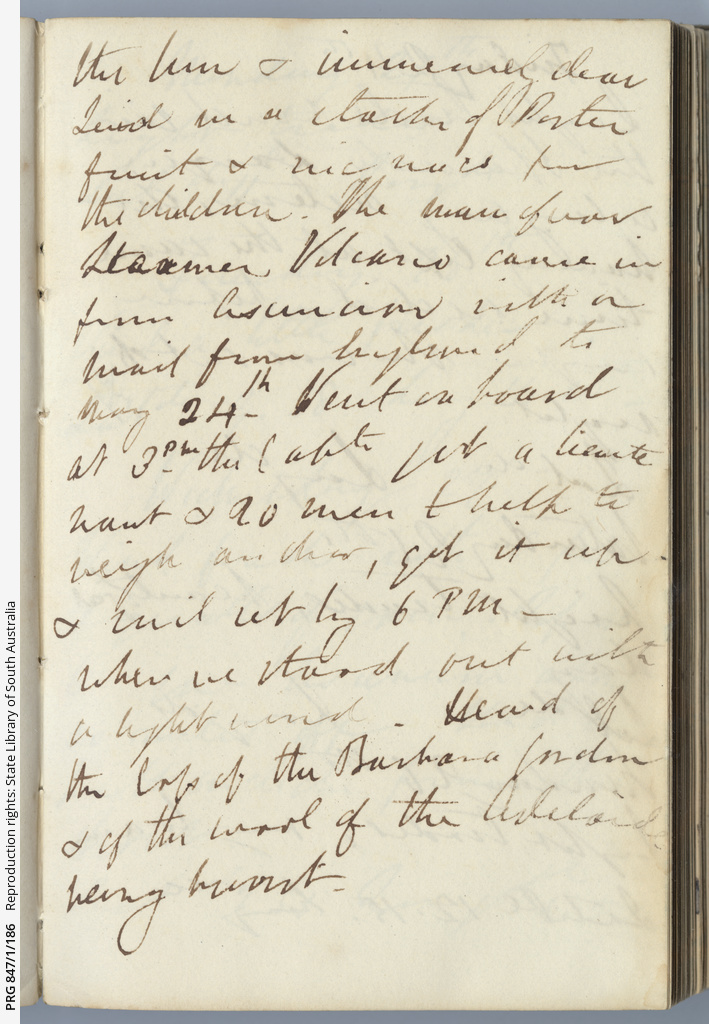 the Inn & immensely dear
Laid in a stock of Porter
fruit & nic nacs for
the children. The man of war
Steamer Volcano came in
from Ascension with a
mail from England to
May 24th Went on board
at 3 PM the Captn got a lieute
nant & 20 men to help to
weigh anchor, got it up
& sail set by 6 PM -
when we stood out with
a light wind. Heard of
the loss of the Barbara Gordon
& of the wool of the Adelaide
being burnt -
PRG 847/1/186 Reproduction rights: State Library of South Australia